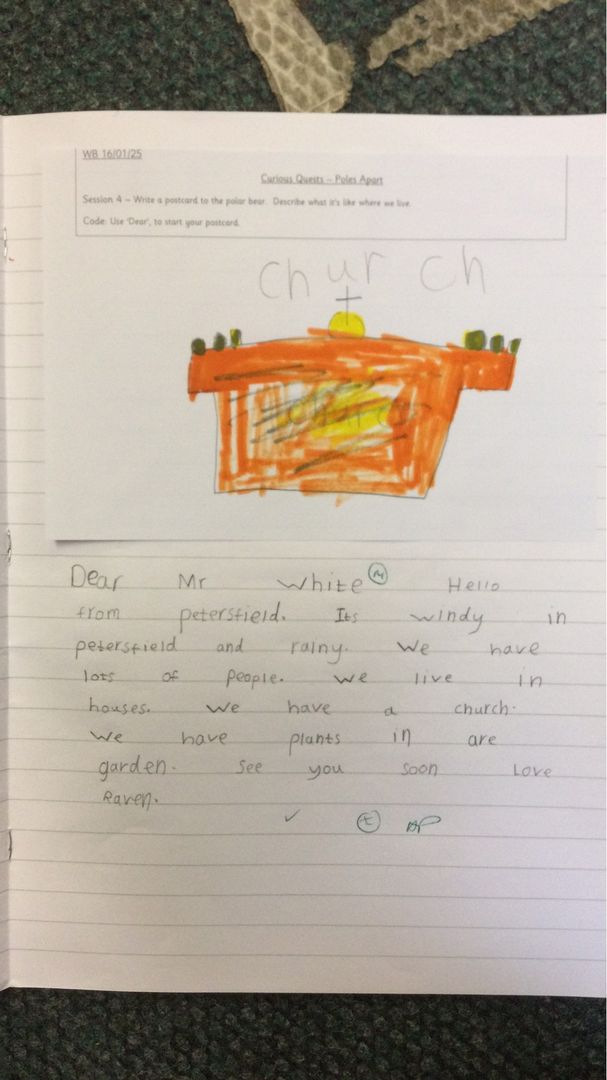 WB 16/01/25
Curious Quests – Poles Apart
Session 4 – Write a postcard to the polar bear. Describe what it's like where we live.
Code: Use 'Dear', to start your postcard.
church
Dear Mr white Hello
from petersfield. Its windy in
petersfield and rainy. We have
lots of people. we live in
houses. we have a church.
we have plants in are
garden. See you soon Love
Raven.